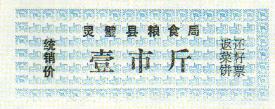 灵璧县粮食局
统销价
壹市斤
还籽票
返菜饼